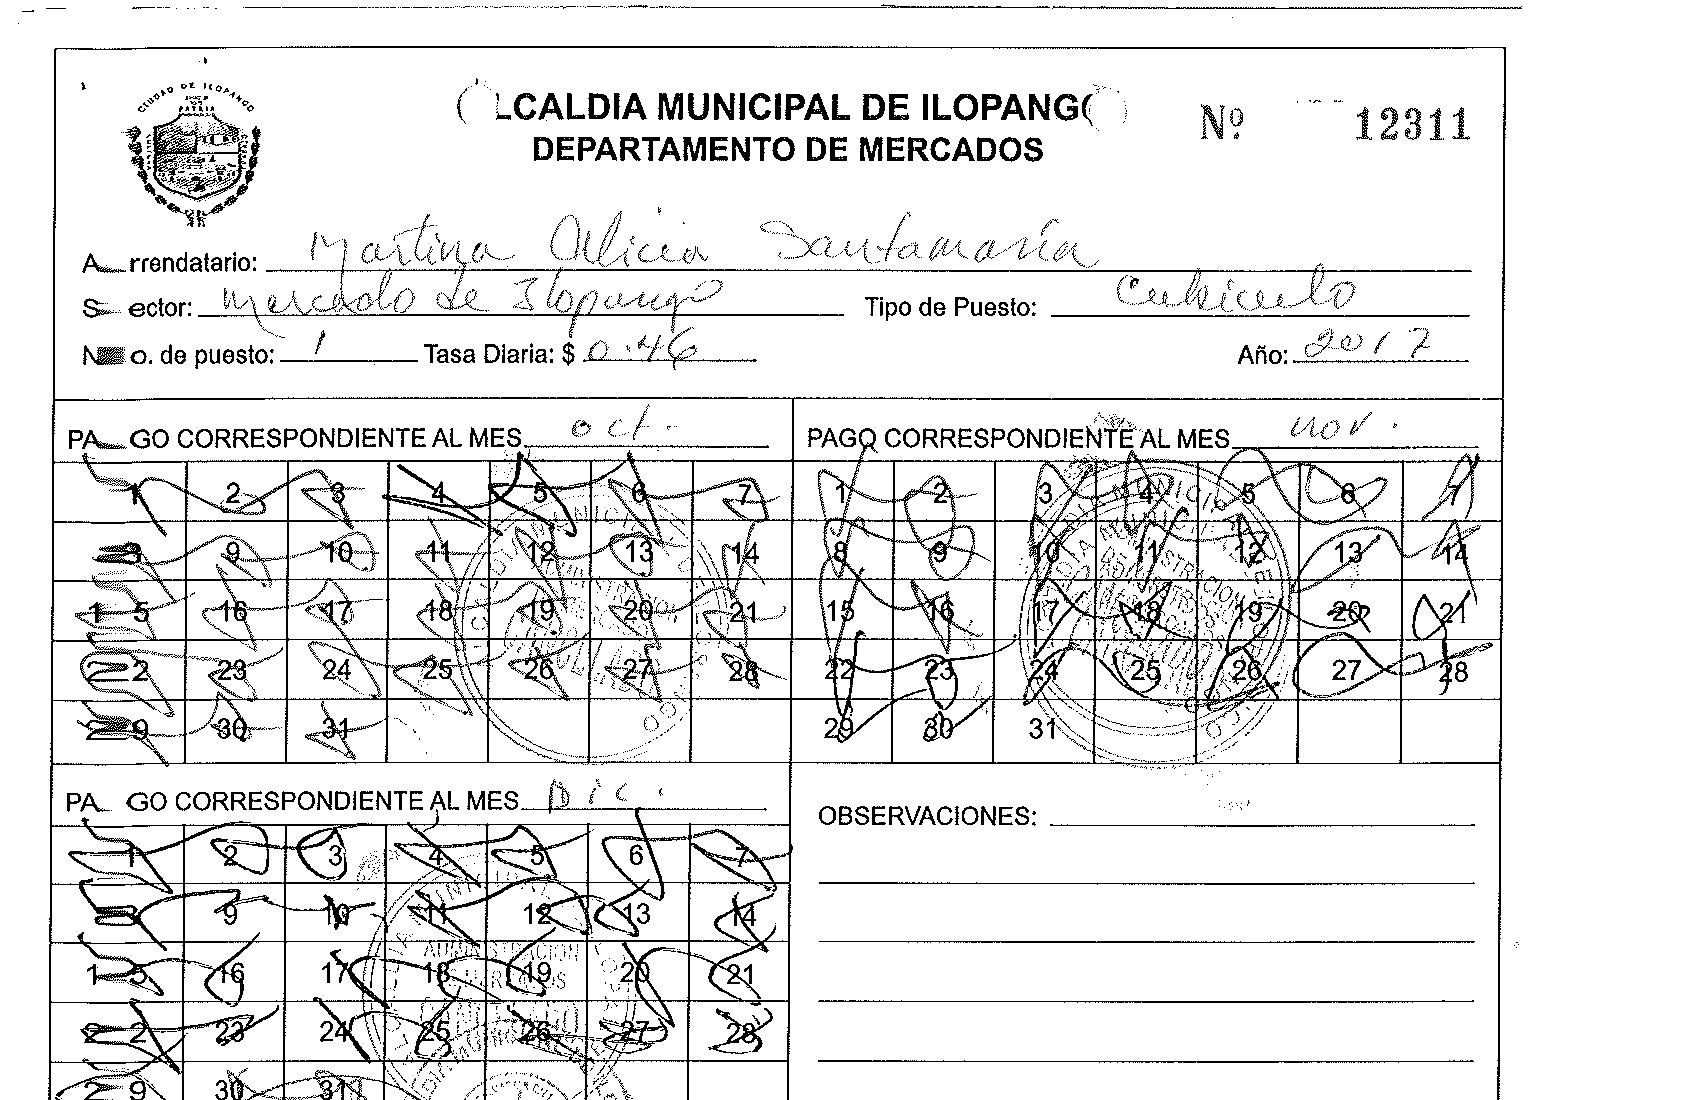 CIUDAD DE ILOPANGO
PATRIA
LCALDIA MUNICIPAL DE ILOPANG
DEPARTAMENTO DE MERCADOS
Nº 12311
A rrendatario: Martina Alicia Santamaría
S ector: Mercado de Ilopango Tipo de Puesto: Cubiculo
N o. de puesto: 1 Tasa Diaria: $ 0.46 Año: 2017
PA GO CORRESPONDIENTE AL MES oct.
1 2 3 4 5 6 7
8 9 10 11 12 13 14
1 5 16 17 18 19 20 21
2 2 23 24 25 26 27 28
2 9 30 31
PAGO CORRESPONDIENTE AL MES nov.
1 2 3 4 5 6 7
8 9 10 11 12 13 14
15 16 17 18 19 20 21
22 23 24 25 26 27 28
29 30 31
PA GO CORRESPONDIENTE AL MES Dic.
1 2 3 4 5 6 7
8 9 10 11 12 13 14
1 5 16 17 18 19 20 21
2 2 23 24 25 26 27 28
2 9 30 31
OBSERVACIONES: